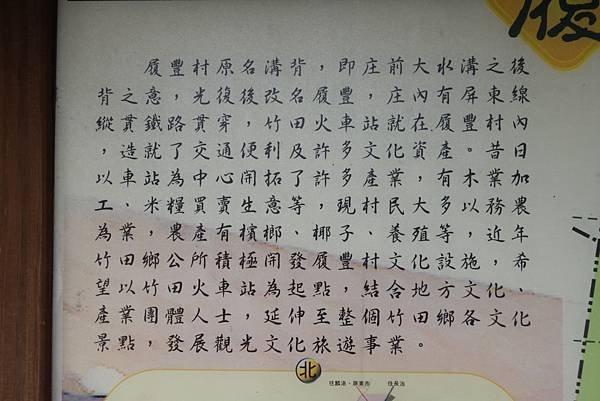 履
履豐村原名溝背，即庄前大水溝之後
背之意，光復後改名履豐，庄內有屏東線
縱貫鐵路貫穿，竹田火車站就在履豐村內
，造就了交通便利及許多文化資產。昔日
以車站為中心開拓了許多產業，有木業加
工、米糧買賣生意等，現村民大多以務農
為業，農產有檳榔、椰子、養殖等，近年
竹田鄉公所積極開發履豐村文化設施，希
望以竹田火車站為起點，結合地方文化、
產業團體人士，延伸至整個竹田鄉各文化
景點，發展觀光文化旅遊事業。
北
往麟洛、屏東市
往長治